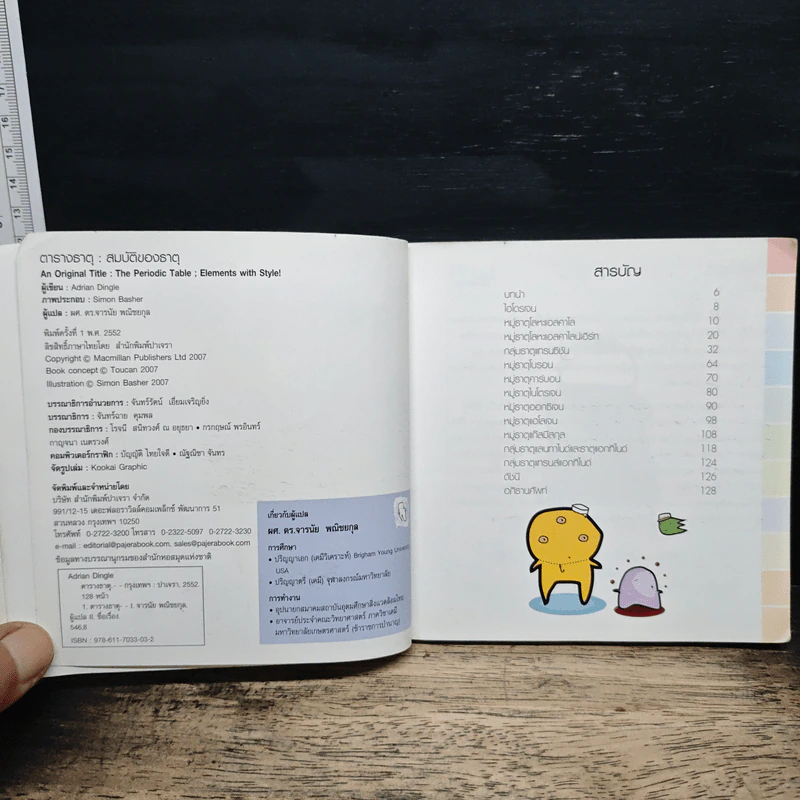 ตารางธาตุ : สมบัติของธาตุ
An Original Title : The Periodic Table ; Elements with Style!
ผู้เขียน : Adrian Dingle
ภาพประกอบ : Simon Basher
ผู้แปล : ผศ. ดร.จารนัย พณิชยกุล
พิมพ์ครั้งที่ 1 พ.ศ. 2552
ลิขสิทธิ์ภาษาไทยโดย สำนักพิมพ์ปาเจรา
Copyright © Macmillan Publishers Ltd 2007
Book concept © Toucan 2007
Illustration © Simon Basher 2007
บรรณาธิการอำนวยการ : จันทร์รัตน์ เอี่ยมเจริญยิ่ง
บรรณาธิการ : จันทร์ฉาย คุมพล
กองบรรณาธิการ : โรจนี สนิทวงศ์ ณ อยุธยา • กรกฤษณ์ พรอินทร์
กาญจนา เนตรวงศ์
คอมพิวเตอร์กราฟิก : บัญญัติ ไทยใจดี • ณัฐณิชา จันทร
จัดรูปเล่ม : Kookai Graphic
จัดพิมพ์และจำหน่ายโดย
บริษัท สำนักพิมพ์ปาเจรา จำกัด
991/12-15 เดอะพ่อลราวิลล์คอมเพล็กซ์ พัฒนาการ 51
สวนหลวง กรุงเทพฯ 10250
โทรศัพท์ 0-2722-3200 โทรสาร 0-2322-5097 0-2722-3230
e-mail : editorial@pajerabook.com, sales@pajerabook.com
ข้อมูลทางบรรณานุกรมของสำนักหอสมุดแห่งชาติ
Adrian Dingle
ตารางธาตุ.- - กรุงเทพฯ : ปาเจรา, 2552.
128 หน้า
1. ตารางธาตุ- - I. จารนัย พณิชยกุล,
ผู้แปล II. ชื่อเรื่อง.
546.8
ISBN : 978-611-7033-03-2
เกี่ยวกับผู้แปล
ผศ. ดร.จารนัย พณิชยกุล
การศึกษา
• ปริญญาเอก (เคมีวิเคราะห์) Brigham Young University
USA
• ปริญญาตรี (เคมี) จุฬาลงกรณ์มหาวิทยาลัย
การทำงาน
• อุปนายกสมาคมสถาบันอุดมศึกษาสิ่งแวดล้อมไทย
• อาจารย์ประจำคณะวิทยาศาสตร์ ภาควิชาเคมี
มหาวิทยาลัยเกษตรศาสตร์ (ข้าราชการบำนาญ)
สารบัญ
บทนำ 6
ไฮโดรเจน 8
หมู่ธาตุโลหะแอลคาไล 10
หมู่ธาตุโลหะแอลคาไลน์เอิร์ท 20
กลุ่มธาตุแทรนซิชัน 32
หมู่ธาตุโบรอน 64
หมู่ธาตุคาร์บอน 70
หมู่ธาตุไนโตรเจน 80
หมู่ธาตุออกซิเจน 90
หมู่ธาตุแฮโลเจน 98
หมู่ธาตุแก๊สมีสกุล 108
กลุ่มธาตุแลนทาไนด์และธาตุแอกทิไนด์ 118
กลุ่มธาตุแทรนส์แอกทิไนด์ 124
ดัชนี 126
อภิธานศัพท์ 128
13
14
15
16
17